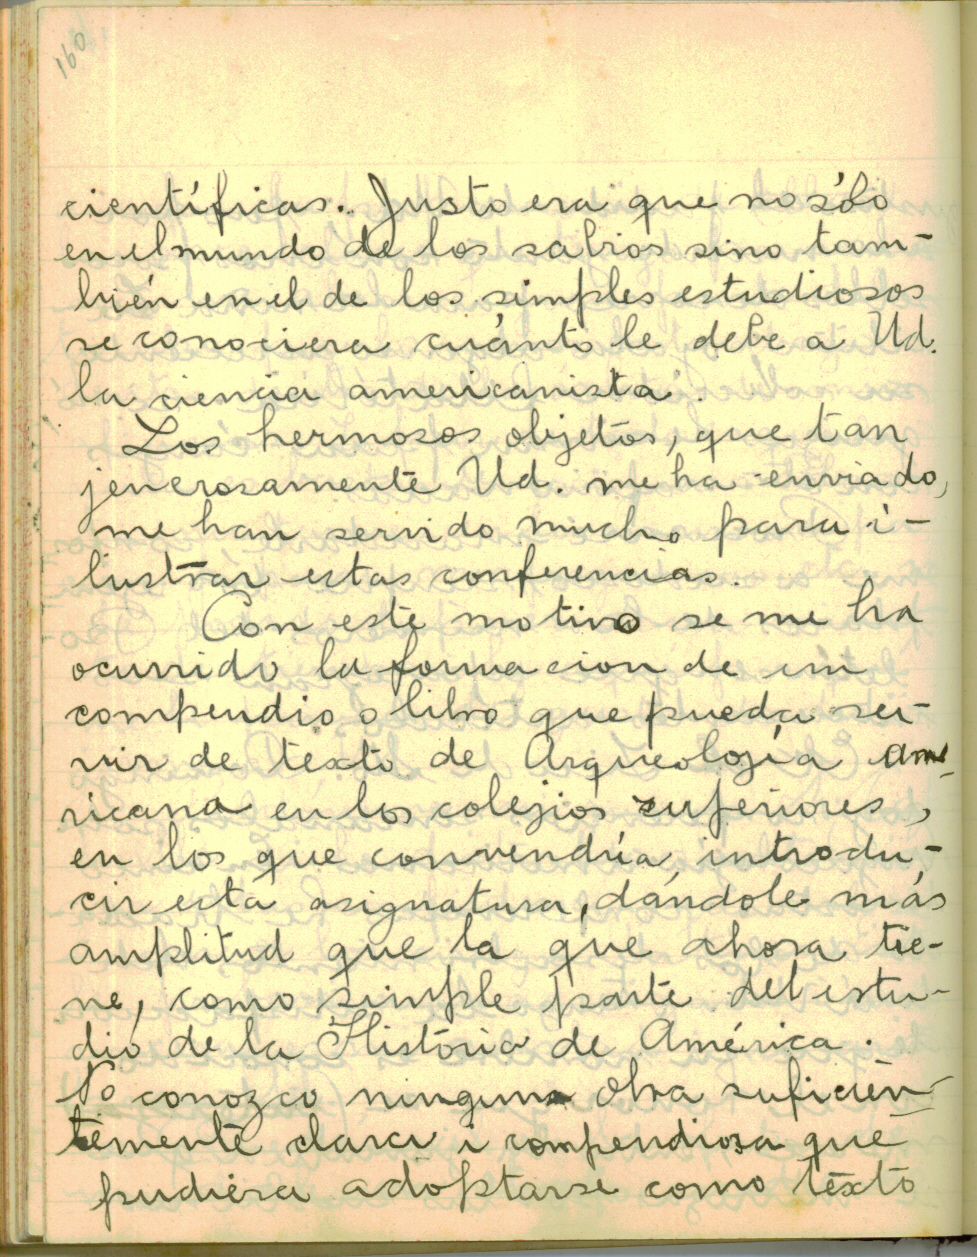 160
científicas. Justo era que no sólo
en el mundo de los sabios sino tam-
bién en el de los simples estudiosos
se conociera cuánto le debe a Ud.
la ciencia americanista.
Los hermosos objetos, que tan
jenerosamente Ud. me ha enviado,
me han servido mucho para i-
lustrar estas conferencias.
Con este motivo se me ha
ocurrido la formacion de un
compendio o libro que pueda ser-
vir de texto de Arqueolojía ame-
ricana en los colejios superiores,
en los que convendría introdu-
cir esta asignatura, dándole más
amplitud que la que ahora tie-
ne, como simple parte del estu-
dio de la História de América.
No conozco ninguna obra suficien-
temente clara i compendiosa que
pudiera adoptarse como texto